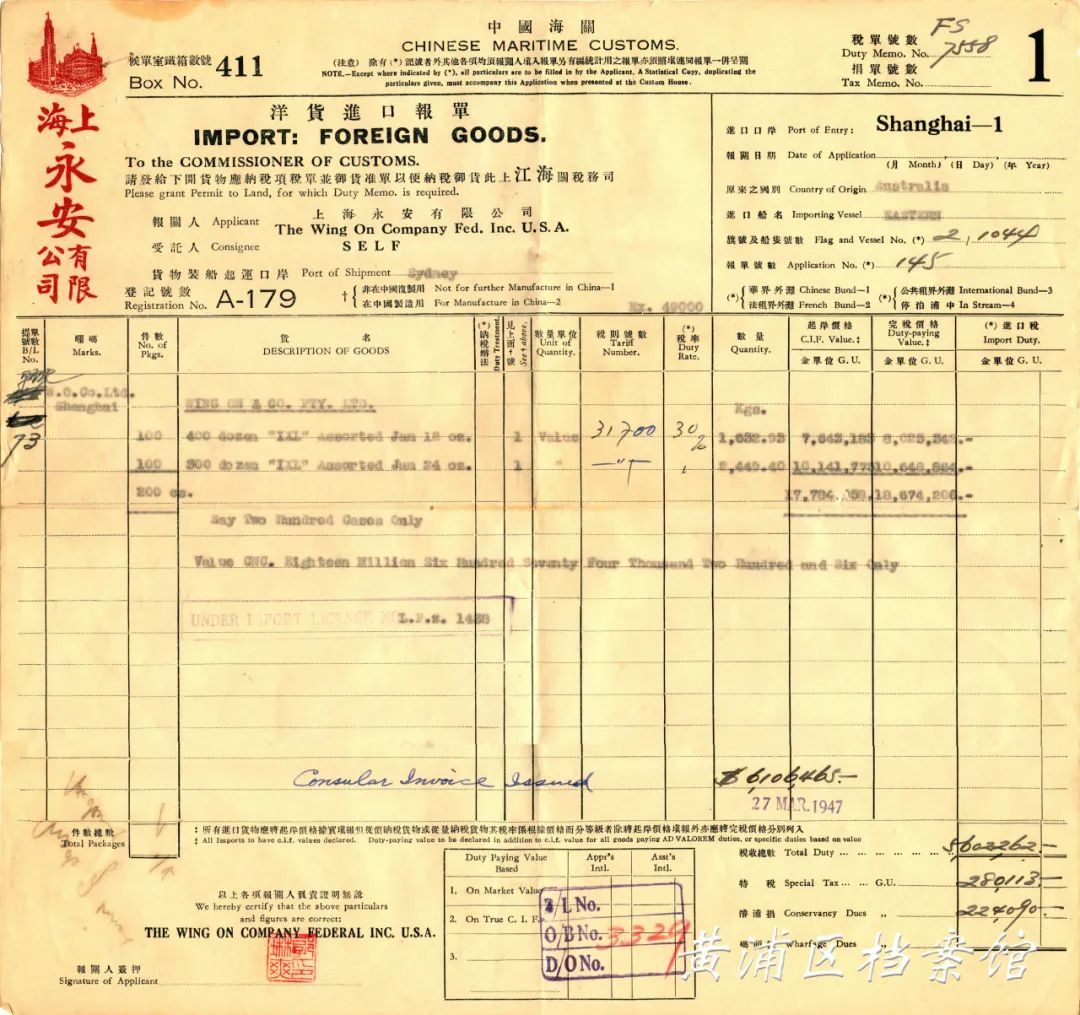 中國海關
CHINESE MARITIME CUSTOMS.
候單室鐵箱數號
Box No. 411
(注意) 除有(*)記號者外其他各項均須報關人填入報單另有編統計用之報單亦須照填連同報單一併呈閱
NOTE.—Except where indicated by (*), all particulars are to be filled in by the Applicant, A Statistical Copy, duplicating the
particulars given, must accompany this Application when presented at the Custom House.
稅單號數 FS
Duty Memo. No. 7558
捐單號數
Tax Memo. No.
1
上海
永安
有限公司
洋貨進口報單
IMPORT: FOREIGN GOODS.
To the COMMISSIONER OF CUSTOMS.
請發給下開貨物應納稅項稅單並御貨准單以便納稅御貨此上江海關稅務司
Please grant Permit to Land, for which Duty Memo. is required.
報關人 Applicant 上海永安有限公司
The Wing On Company Fed. Inc. U.S.A.
受託人 Consignee SELF
貨物装船起運口岸 Port of Shipment Sydney
登記號數
Registration No. A-179
† 非在中國復製用 Not for further Manufacture in China—1
在中國製造用 For Manufacture in China—2
Ex. 49000
進口口岸 Port of Entry: Shanghai—1
報關日期 Date of Application
(月 Month) (日 Day) (年 Year)
原來之國別 Country of Origin Australia
進口船名 Importing Vessel EASTERN
旗號及船隻號數 Flag and Vessel No. (*) 2, 1044
報單號數 Application No. (*) 145
(*) 華界外灘 Chinese Bund—1
法租界外灘 French Bund—2
(*) 公共租界外灘 International Bund—3
停泊浦中 In Stream—4
提單號數 B/L No.
嘜碼 Marks.
件數 No. of Pkgs.
貨名
DESCRIPTION OF GOODS
(*) 納稅辦法 Duty Treatment.
見上面†號 See † above.
數量單位 Unit of Quantity.
稅則號數 Tariff Number.
(*) 稅率 Duty Rate.
數量 Quantity.
起岸價格 C.I.F. Value.‡
金單位 G. U.
完稅價格 Duty-paying Value.‡
金單位 G. U.
(*) 進口稅 Import Duty.
金單位 G. U.
W.O.Co.Ltd.
Shanghai
WING ON & CO. PTY. LTD.
Kgs.
73
100 400 dozen "IXL" Assorted Jam 12 oz. 1 Value 31700 30% 1,632.93 7,643,183 8,025,342.-
100 300 dozen "IXL" Assorted Jam 24 oz. 1 " 2,449.40 10,141,775 10,648,864.-
200 cs. 17,784,958 18,674,206.-
Say Two Hundred Cases Only
Value CNC. Eighteen Million Six Hundred Seventy Four Thousand Two Hundred and Six Only
UNDER IMPORT LICENCE NO. L.P.z. 1438
Consular Invoice Issued
$ 6106465—
27 MAR. 1947
件數總數
Total Packages
‡ 所有進口貨物應將起岸價格據實填報但從價納稅貨物或從量納稅貨物其稅率係根據價格而分等級者除將起岸價格填報外亦應將完稅價格分別列入
‡ All Imports to have c.i.f. values declared. Duty-paying value to be declared in addition to c.i.f. value for all goods paying AD VALOREM duties, or specific duties based on value
Duty Paying Value Based
Appr's Intl.
Asst's Intl.
1. On Market Value
2. On True C. I. F.
3.
B/L No.
O/B No. 3329
D/O No.
稅收總數 Total Duty 5602262—
特稅 Special Tax G.U. 280113.—
濬浦捐 Conservancy Dues " 224090.—
碼頭捐 Wharfage Dues "
以上各項報關人眞實證明無訛
We hereby certify that the above particulars
and figures are correct:
THE WING ON COMPANY FEDERAL INC. U.S.A.
報關人簽押
Signature of Applicant
黄浦区档案馆